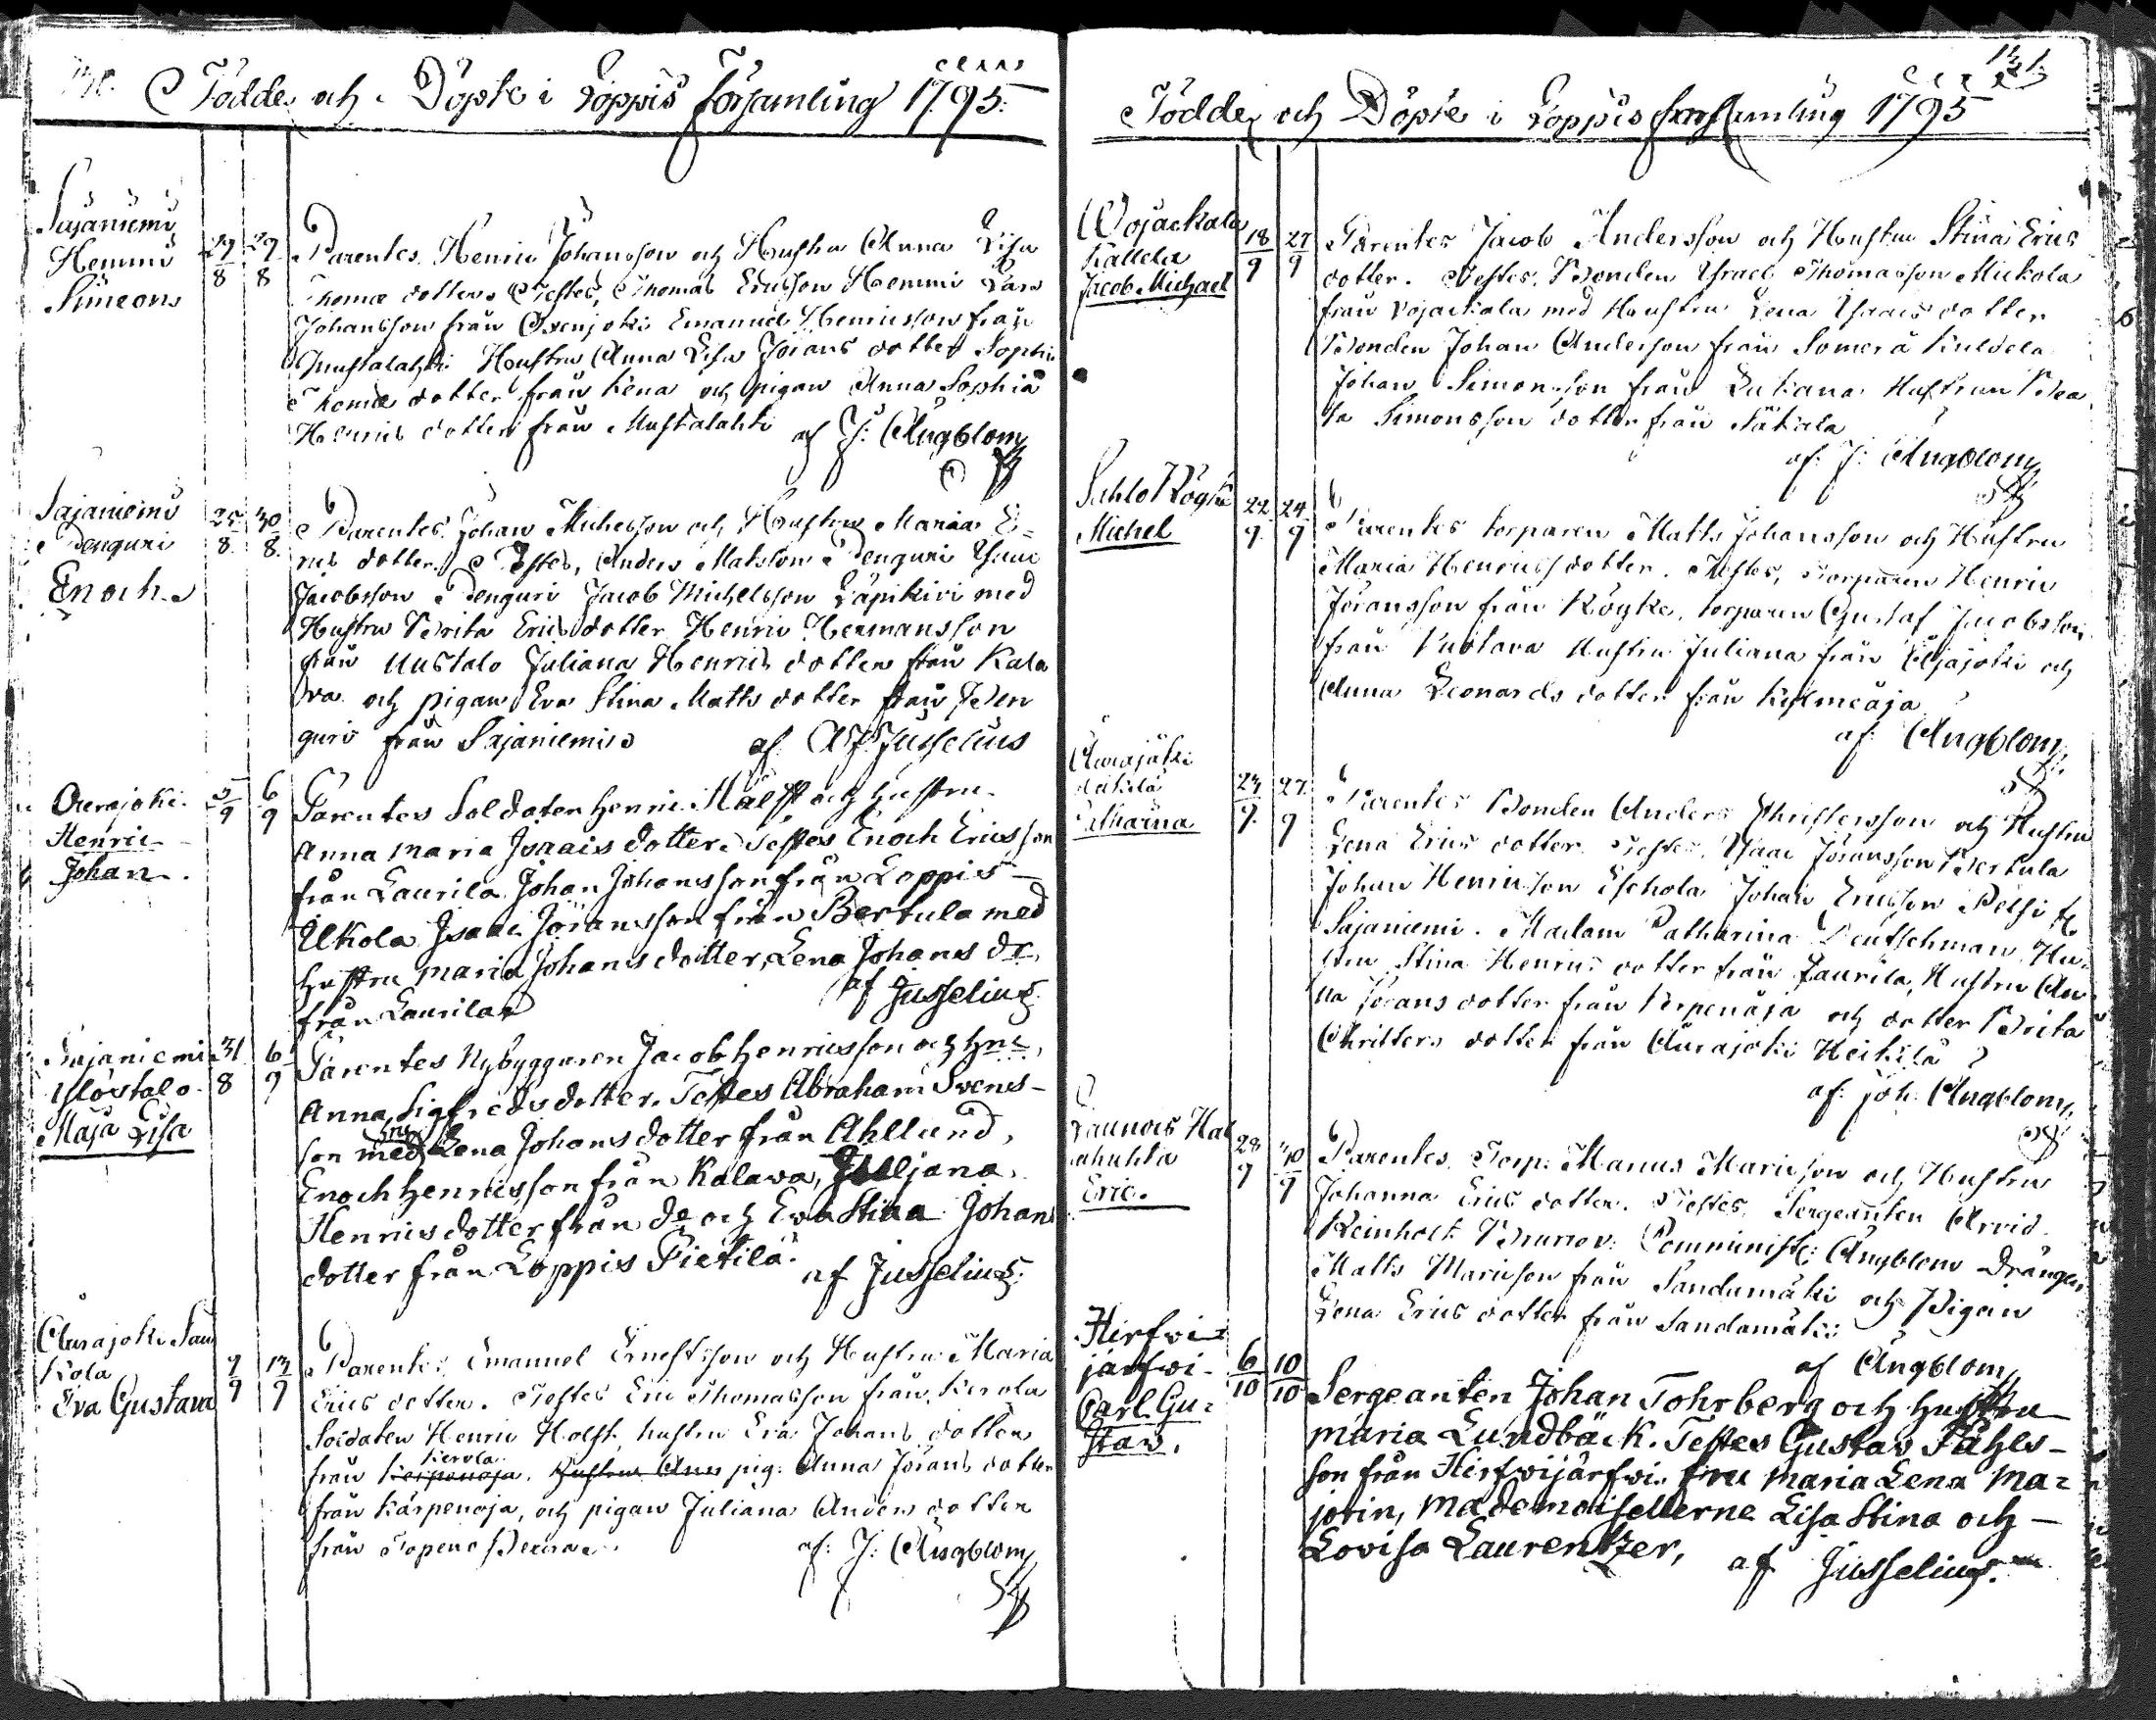 Födde och Döpte i Loppis Församling 1795.
Sajaniemi
Hemmi
Simeon
29 29
8 8
Parentes Henric Johansson och Hustru Anna Lisa
Thomæ dotter. Testes, Thomas Ericsson Hemmi Lars
Johansson från Emanuel Henricsson från
Mustalahti Hustru Anna Lisa Jörans dotter Sophia
Thomæ dotter från Kena och pigan Anna Sophia
Henrics dotter från Mustalahti af J: Ångblom
Sajaniemi
Penguri
Enoch
25 30
8 8
Parentes Johan Michelsson och Hustru Maria E=
rics dotter. Testes, Anders Matsson Penguri Isaac
Jacobsson Penguri Jacob Michelsson Läpikivi med
Hustru Brita Erics dotter Henric Hermansson
från Uustalo Juliana Henrics dotter från Kala
va och pigan Eva Stina Matts dotter från Pen
guri från Sajaniemi af Jusselius
Ourajoki.
Henric
Johan.
5 6
9 9
Parentes Soldaten Henric Hålst och hustru
Anna Maria Isaacs dotter. Testes Enoch Ericsson
från Laurila Johan Johansson från Loppis
Ilkola Isaac Jöransson från Bertula med
hustru Maria Johans dotter, Lena Johans dr.
från Laurila af Jusselius
Sajaniemi
Ylöstalo
Maja Lisa
31 6
8 9
Parentes Nybyggaren Jacob Henricsson och Hu.
Anna Sigfreds dotter. Testes Abraham Svens-
son med hu Lena Johans dotter från Ahllund,
Enoch Henricsson från Kalava, Juljana
Henrics dotter från do och Eva Stina Johans
dotter från Loppis Pietilä. af Jusselius.
Ourajoki Sau
kola
Eva Gustava
9 13
9 9
Parentes Emanuel Ernestsson och Hustru Maria
Erics dotter. Testes Eric Thomasson från Kerola
Soldaten Henric Holst, hustru Eva Johans dotter
från Kerola Kerpenoja, Hustru Anna pig: Anna Jörans dotter
från Kärpenoja, och pigan Juliana Anders dotter
från Topeno af: J: Ångblom
131.
Födde och Döpte i Loppis församling 1795
Wojackala
Kallela
Jacob Michael
18 27
9 9
Parentes Jacob Andersson och Hustru Stina Erics
dotter. Testes, Bonden Israel Thomasson Mickola
från Vojackala med Hustru Lena Isaacs dotter
Bonden Johan Anderson från Somerå Kuldela
Johan Simonsson från Hustrun Bea
ta Simonsson dotter från
af: J: Ångblom
Sahlo Köyke
Michel
22 24
9 9
Parentes torparen Matts Johansson och Hustru
Maria Henrics dotter. Testes, torparen Henric
Jöransson från Köyke, torparen Gustaf Jacobsson
från Hustru Juliana från Ojajoki och
Anna Leonards dotter från
af: Ångblom
Ourajoki
Heikilä
Catharina
23 27
9 9
Parentes Bonden Anders Christersson och Hustru
Lena Erics dotter. Testes, Isaac Jöransson Bertula
Johan Henricsson Eskola Johan Ericsson Pelsi fr.
Sajaniemi. Madam Catharina Deutschman, Hu
stru Stina Henrics dotter från Laurila, Hustru An
na Jörans dotter från Kerpenäja och dotter Brita
Christers dotter från Ourajoki Heikilä
af: Joh. Ångblom
Launois Hal
ahuhta
Eric.
28 30
9 9
Parentes Torp: Manus Maricson och Hustru
Johanna Erics dotter. Testes, Sergeanten Arvid
Reinholt Brunov: Comminist: Ångblom Drängen
Matts Maricson från Sandamäki och Pigan
Lena Erics dotter från Sandamäki
af Ångblom
Hirfvi-
järfvi-
Carl Gu-
stav.
6 10
10 10
Sergeanten Johan Tohrberg och Hustru
Maria Lundbäck. Testes Gustav Påhls-
son från Hirfvijärfvi. Fru Maria Lena Ma-
jorin, Mademoisellerne Lisa Stina och
Lovisa Laurentzer, af Jusselius.